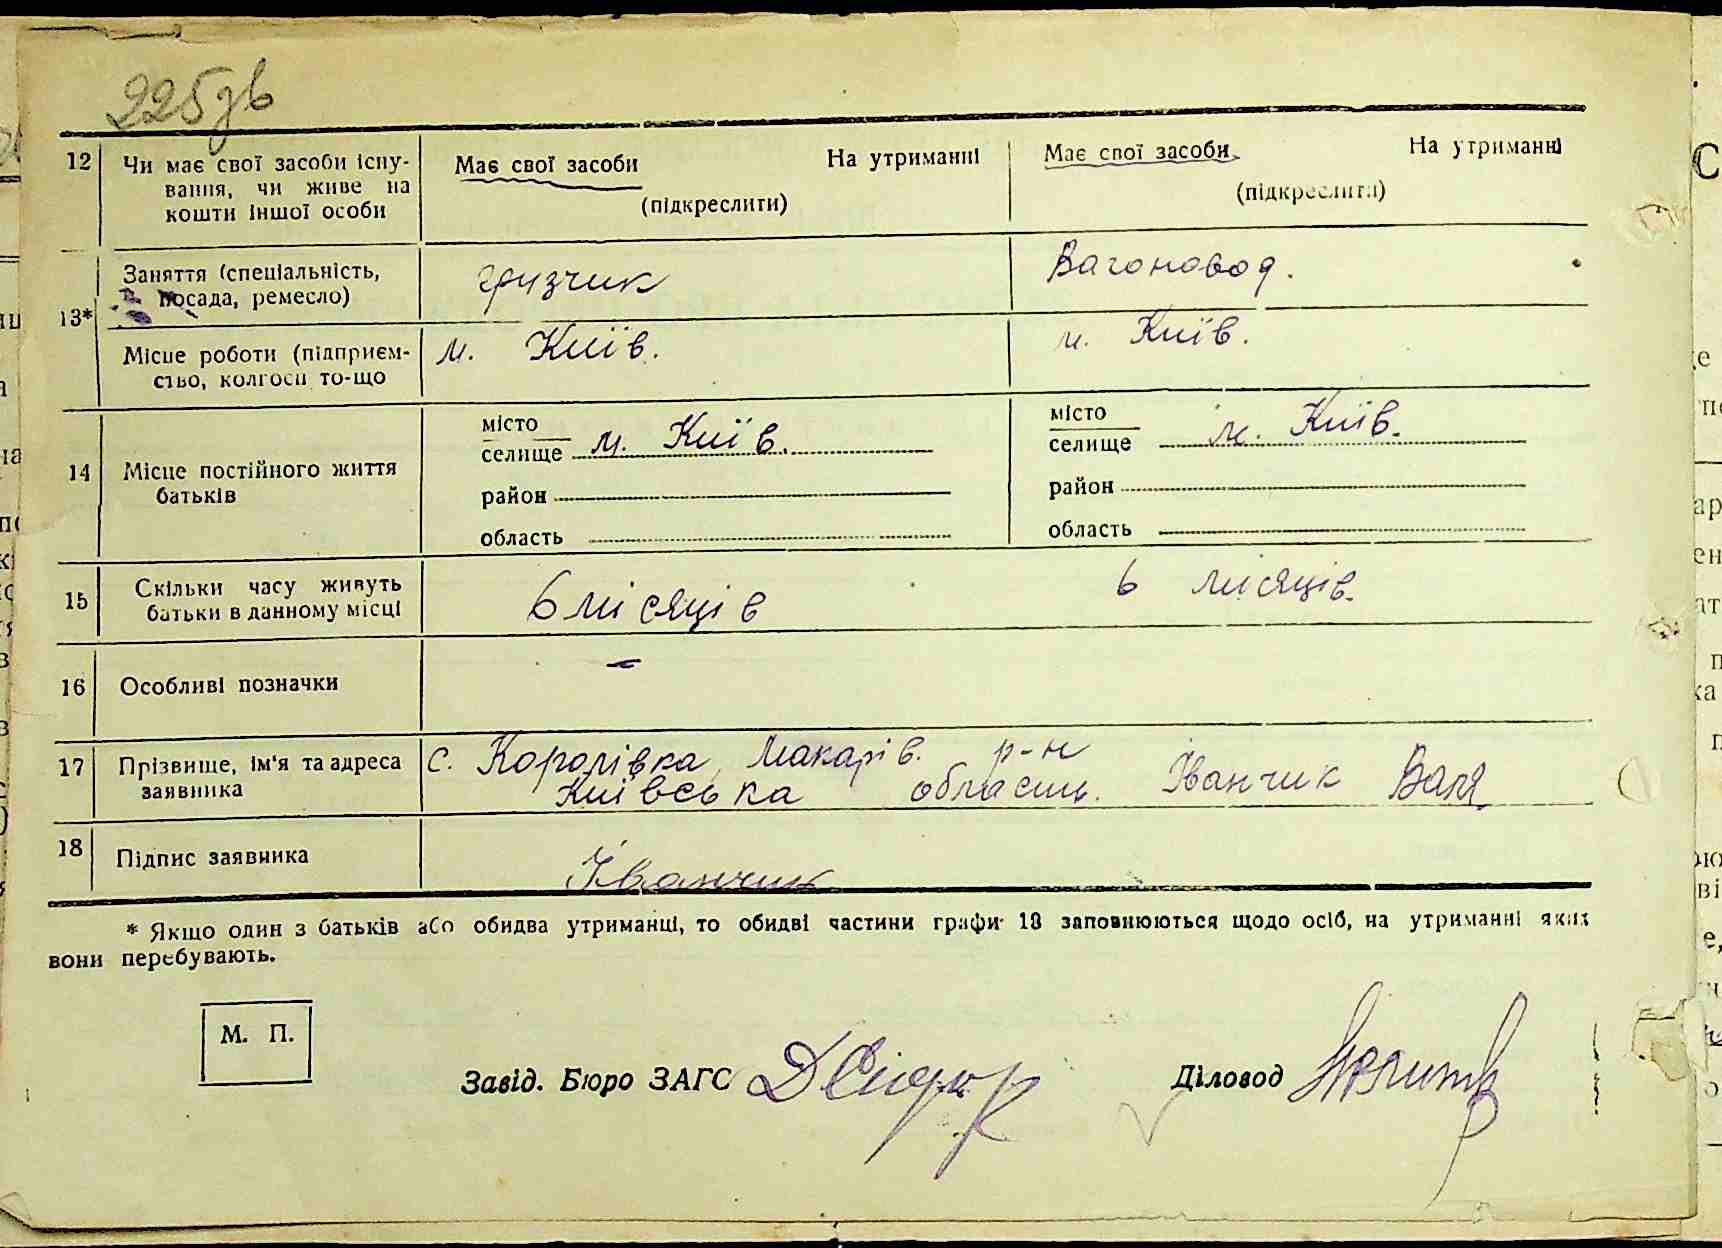 225зв
12 Чи має свої засоби існу-
вання, чи живе на
кошти іншої особи
Має свої засоби На утриманні
(підкреслити)
Має свої засоби На утриманні
(підкреслити)
13*
Заняття (спеціальність,
посада, ремесло)
грузчик
Вагоновод.
Місце роботи (підприєм-
ство, колгосп то-що
м. Київ.
м. Київ.
14 Місце постійного життя
батьків
місто
селище м. Київ.
район
область
місто
селище м. Київ.
район
область
15 Скільки часу живуть
батьки в данному місці
6 місяців
6 місяців.
16 Особливі позначки
–
17 Прізвище, ім'я та адреса
заявника
с. Королівка, Макарів. р-н
Київська область. Іванчик Валя
18 Підпис заявника
Іванчик
* Якщо один з батьків або обидва утриманці, то обидві частини графи 13 заповнюються щодо осіб, на утриманні яких
вони перебувають.
М. П.
Завід. Бюро ЗАГС
Діловод